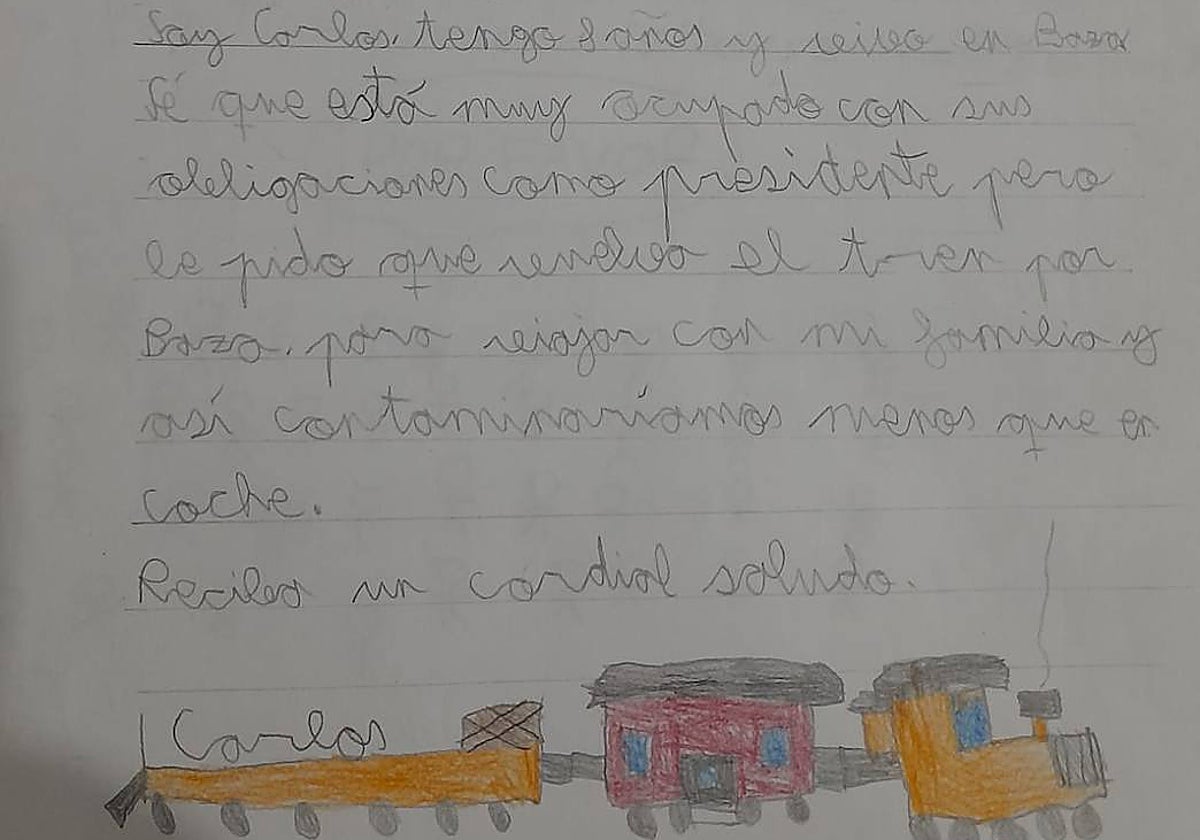 Soy Carlos, tengo 8 años y vivo en Baza
Sé que está muy ocupado con sus
obligaciones como presidente pero
le pido que vuelva el tren por
Baza, para viajar con mi familia y
así contaminaríamos menos que en
coche.
Reciba un cordial saludo.
Carlos